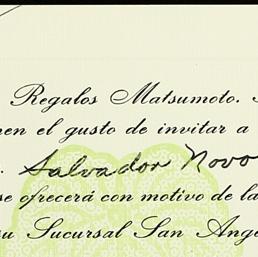 Regalos Matsumoto.
en el gusto de invitar a
Salvador Novo
se ofrecerá con motivo de la
su Sucursal San Ange